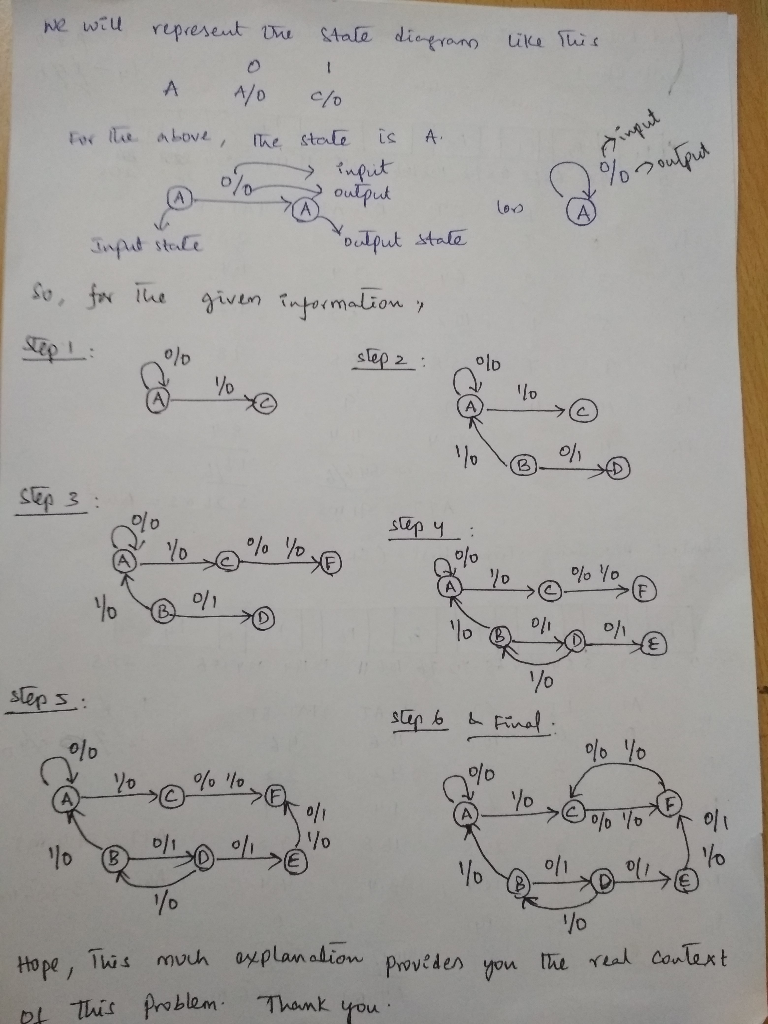 We will represent the state diagram like this
0 1
A A/0 C/0
For the above, the state is A.
→ input
0/0 → output
A 0/0 A input
output
(or) A
Input state output state
So, for the given information,
Step 1: step 2:
0/0 0/0
A 1/0 C A 1/0 C
1/0 B 0/1 D
Step 3: step 4:
0/0 0/0
A 1/0 C 0/0 1/0 F A 1/0 C 0/0 1/0 F
1/0 B 0/1 D 1/0 B 0/1 D 0/1 E
1/0
Step 5: step 6 & Final:
0/0 0/0 0/0 1/0
A 1/0 C 0/0 1/0 F A 1/0 C 0/0 1/0 F
0/1 0/1
1/0 1/0
1/0 B 0/1 D 0/1 E 1/0 B 0/1 D 0/1 E
1/0 1/0
Hope, This much explanation provides you the real context
Of this problem. Thank you.